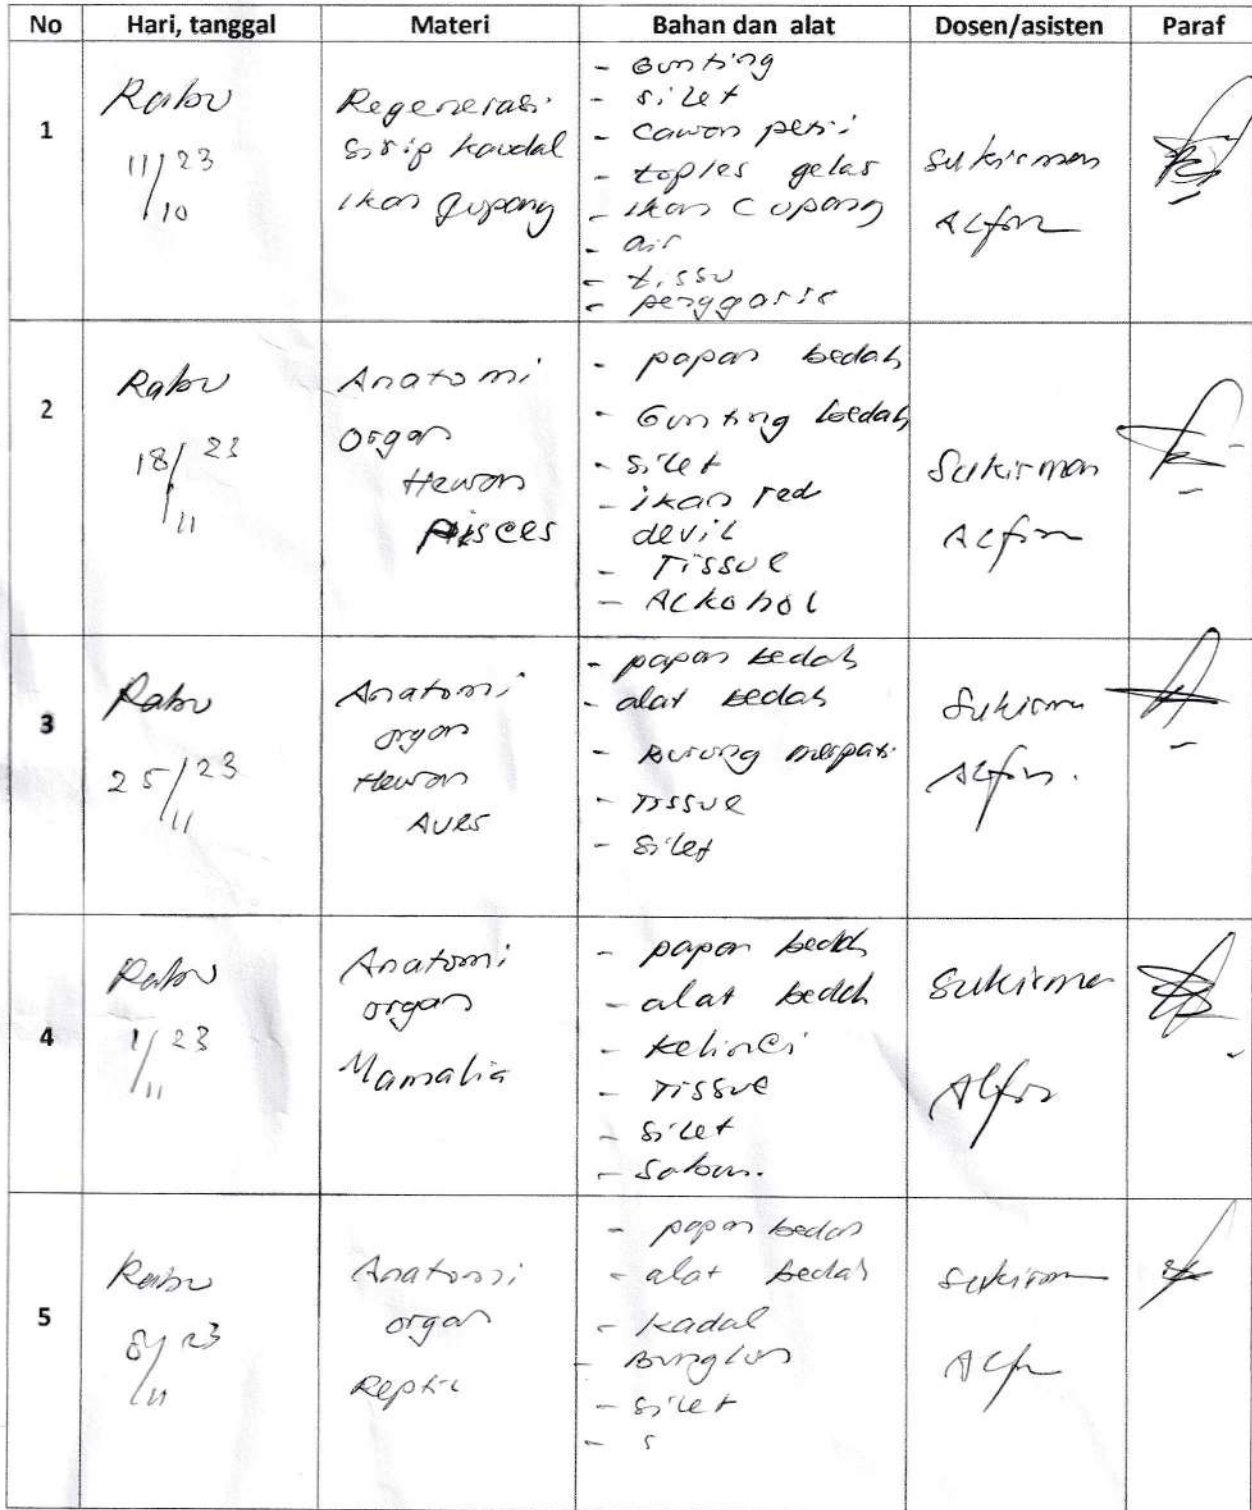 No Hari, tanggal Materi Bahan dan alat Dosen/asisten Paraf
1
Rabu
11/23
/10
Regenerasi
Sirip kaudal
ikan cupang
- Gunting
- silet
- cawan petri
- toples gelas
- ikan cupang
- air
- tissu
- penggaris
Sukirman
Alfin
2
Rabu
18/23
/11
Anatomi
organ
Hewan
Pisces
- papan bedah
- Gunting bedah
- silet
- ikan red
devil
- Tissue
- Alkohol
Sukirman
Alfin
3
Rabu
25/23
/11
Anatomi
organ
Hewan
Aves
- papan bedah
- alat bedah
- Burung merpati
- Tissue
- Silet
Sukirman
Alfin.
4
Rabu
1/23
/11
Anatomi
organ
Mamalia
- papan bedah
- alat bedah
- kelinci
- Tissue
- Silet
- Sabun.
Sukirman
Alfin
5
Rabu
8/23
/11
Anatomi
organ
Reptil
- papan bedah
- alat bedah
- kadal
- Bunglon
- silet
- s
Sukirman
Alfin